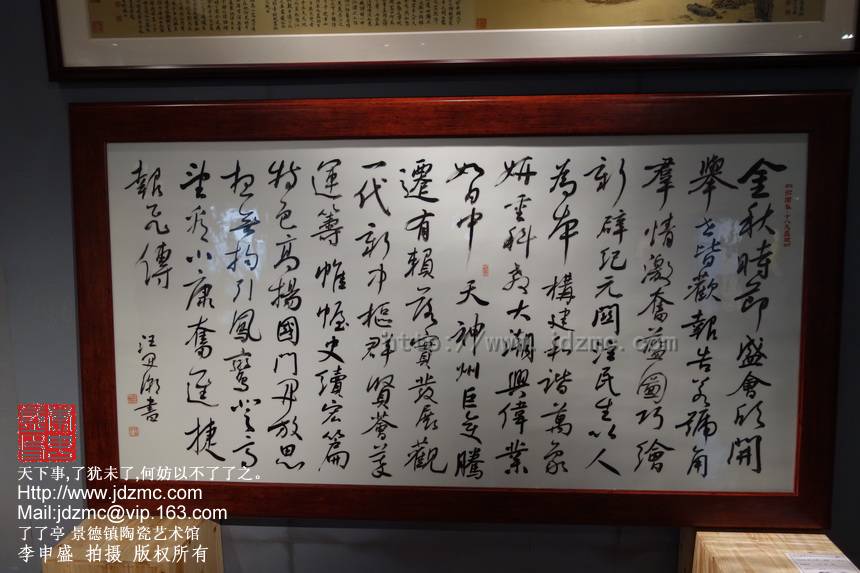 金秋時節盛會欣開
舉世皆歡報告號角
羣情激奮藍圖巧繪
新辟紀元關注民生以人
為本構建和諧萬象
妍重科教大潮興偉業
如日中天神州巨變騰
遷有賴落實發展觀
一代新中樞群賢薈萃
運籌帷幄史續宏篇
特色高揚國門開放思
想無拘引鳳鸞登高
望看小康奮進捷
報飛傳
汪潮書
http://www.jdzmc.com
天下事,了犹未了,何妨以不了了之。
Http://www.jdzmc.com
Mail:jdzmc@vip.163.com
了了亭 景德镇陶瓷艺术馆
李申盛 拍摄 版权所有